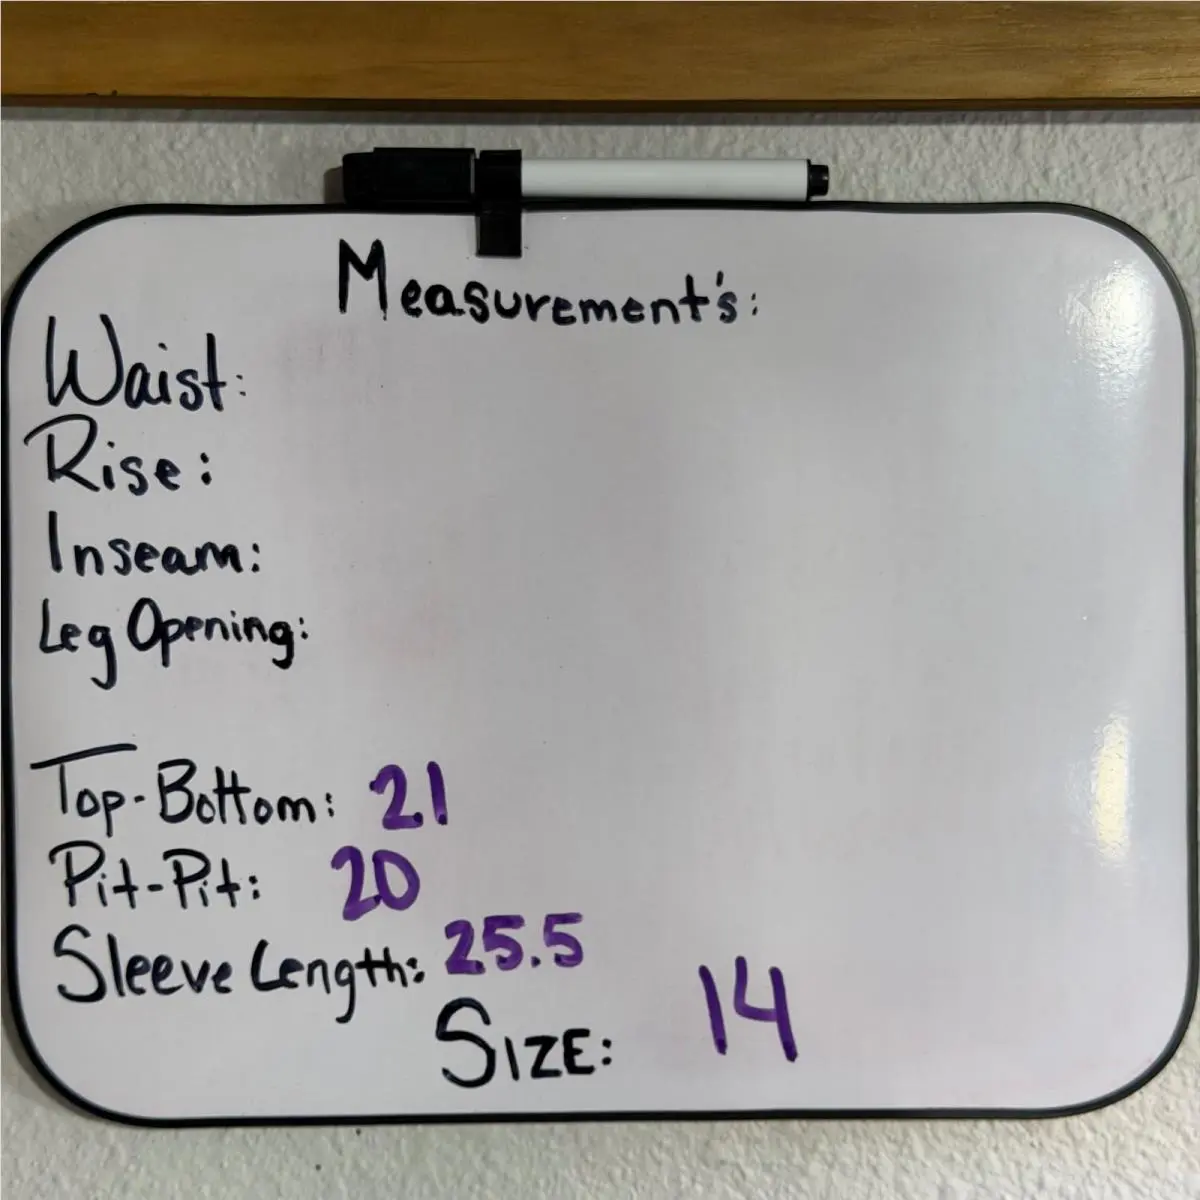 Measurement's:
Waist:
Rise:
Inseam:
Leg Opening:
Top-Bottom: 21
Pit-Pit: 20
Sleeve Length: 25.5
SIZE: 14